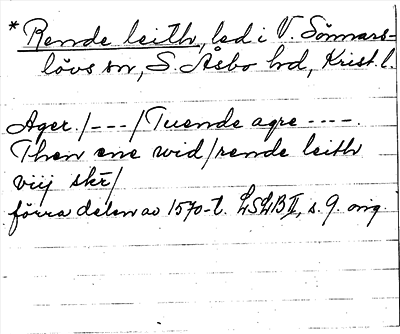 * Rende leith, led i V. Sönnars-
lövs sn, S. Åsbo hd, Krist. l.
Ager /---/ Tuende agre ----.
Then ene wid / rende leith
viij skr /
förra delen av 1570-t. LSLB II, s. 9. orig.